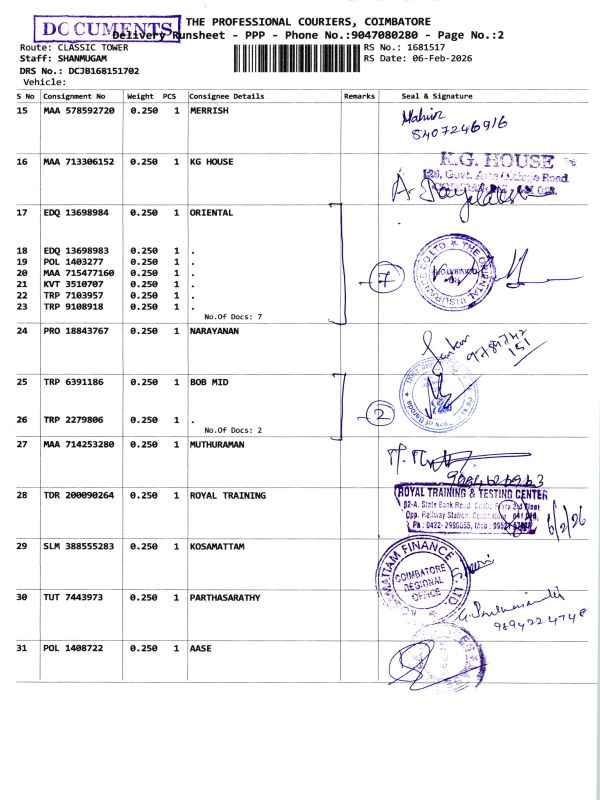 DOCUMENTS
THE PROFESSIONAL COURIERS, COIMBATORE
Delivery Runsheet - PPP - Phone No.:9047080280 - Page No.:2
Route: CLASSIC TOWER
RS No.: 1681517
Staff: SHANMUGAM
RS Date: 06-Feb-2026
DRS No.: DCJB168151702
Vehicle:
S No Consignment No Weight PCS Consignee Details Remarks Seal & Signature
15 MAA 578592720 0.250 1 MERRISH
8407246916
16 MAA 713306152 0.250 1 KG HOUSE
K.G. HOUSE
17 EDQ 13698984 0.250 1 ORIENTAL
18 EDQ 13698983 0.250 1 .
19 POL 1403277 0.250 1 .
20 MAA 715477160 0.250 1 .
7
21 KVT 3510707 0.250 1 .
22 TRP 7103957 0.250 1 .
23 TRP 9108918 0.250 1 .
No.Of Docs: 7
THE ORIENTAL INSURANCE CO LTD
24 PRO 18843767 0.250 1 NARAYANAN
25 TRP 6391186 0.250 1 BOB MID
26 TRP 2279806 0.250 1 .
2
No.Of Docs: 2
Bank of Baroda
27 MAA 714253280 0.250 1 MUTHURAMAN
28 TDR 200090264 0.250 1 ROYAL TRAINING
ROYAL TRAINING & TESTING CENTER
6/2/26
29 SLM 388555283 0.250 1 KOSAMATTAM
COIMBATORE
REGIONAL
OFFICE
30 TUT 7443973 0.250 1 PARTHASARATHY
9894224748
31 POL 1408722 0.250 1 AASE